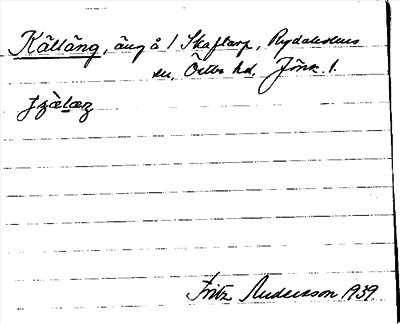 Källäng, äng å 1 Skaftarp, Rydaholms
sn, Östbo hd, Jönk. l.
Fritz Andersson 1939.